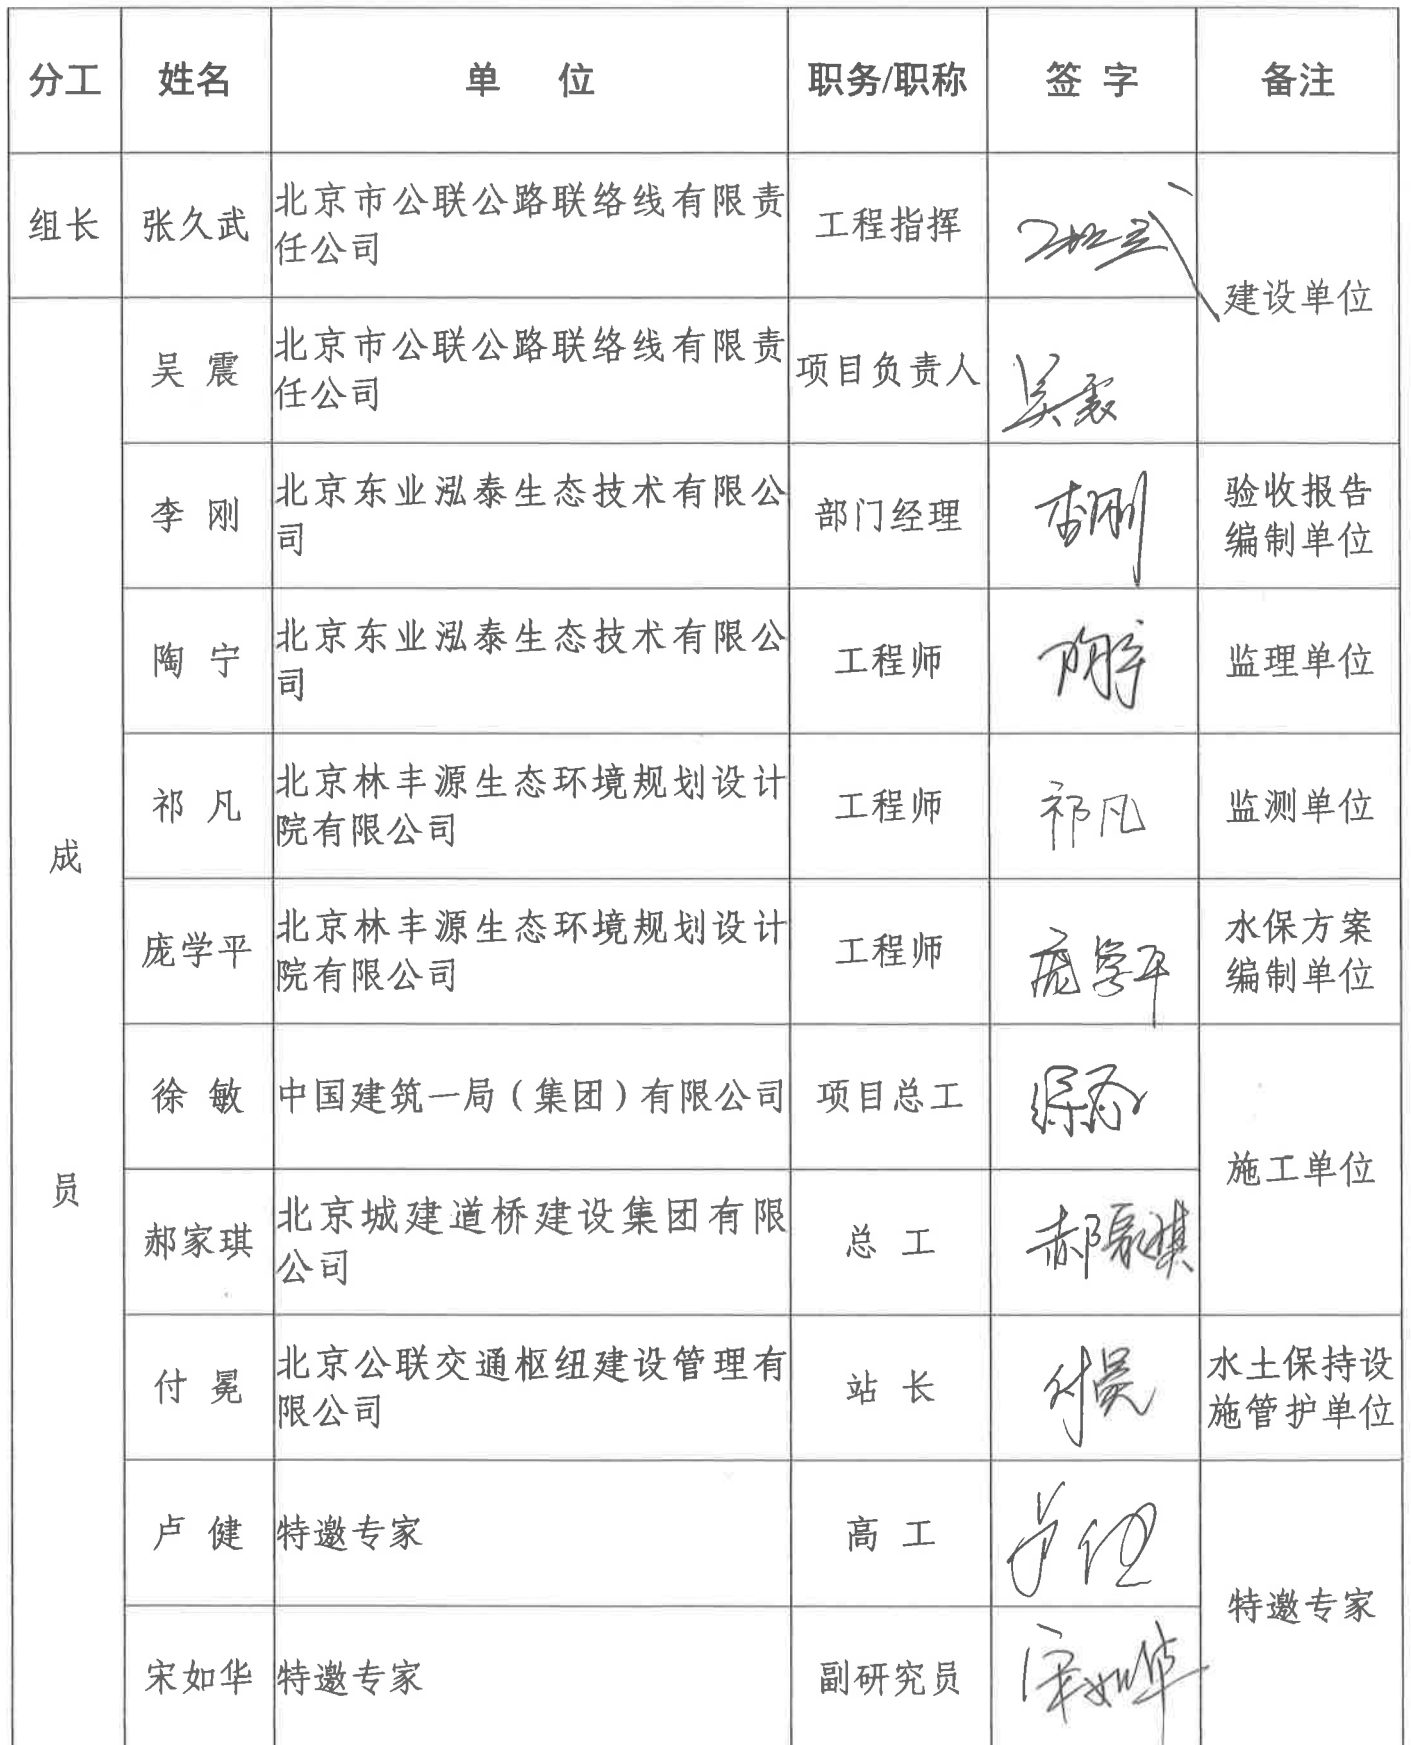 分工 姓名 单 位 职务/职称 签 字 备注
组长 张久武 北京市公联公路联络线有限责
任公司 工程指挥
建设单位
成
员
吴 震 北京市公联公路联络线有限责
任公司 项目负责人 吴震
李 刚 北京东业泓泰生态技术有限公
司 部门经理 李刚 验收报告
编制单位
陶 宁 北京东业泓泰生态技术有限公
司 工程师 陶宁 监理单位
祁 凡 北京林丰源生态环境规划设计
院有限公司 工程师 祁凡 监测单位
庞学平 北京林丰源生态环境规划设计
院有限公司 工程师 庞学平 水保方案
编制单位
徐 敏 中国建筑一局（集团）有限公司 项目总工
施工单位
郝家琪 北京城建道桥建设集团有限
公司 总 工 郝家琪
付 冕 北京公联交通枢纽建设管理有
限公司 站 长 付冕 水土保持设
施管护单位
卢 健 特邀专家 高 工 卢健
特邀专家
宋如华 特邀专家 副研究员 宋如华